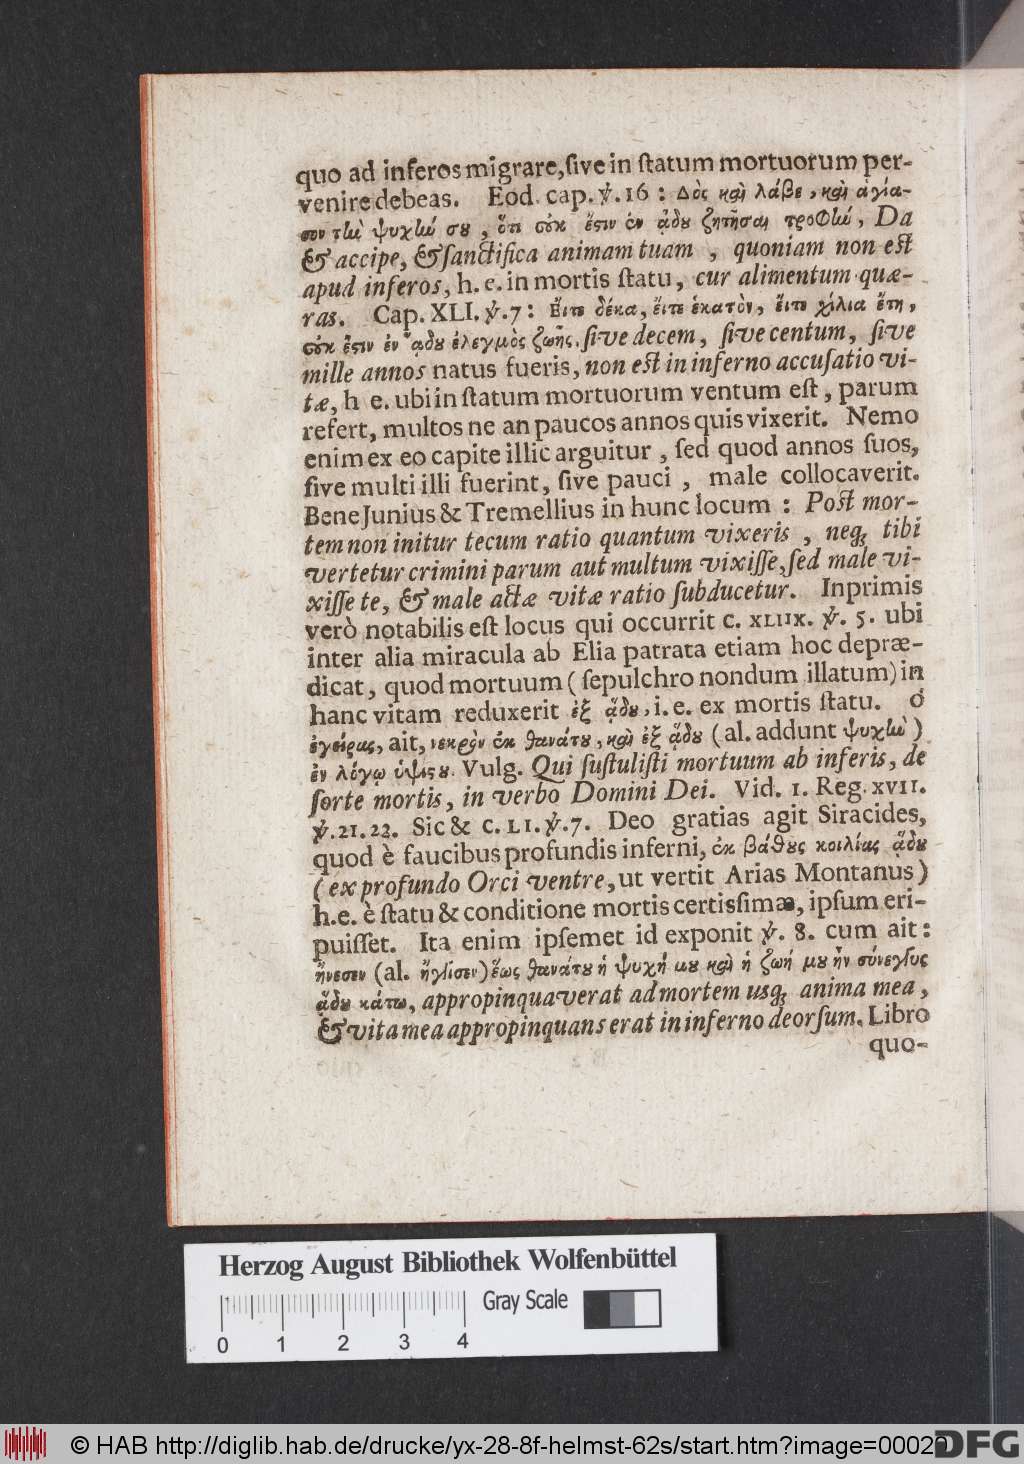 quo ad inferos migrare, ſive in ſtatum mortuorum per-
venire debeas. Eod. cap. ℣. 16 : Δὸς καὶ λάβε, καὶ ἁγία-
σον τὴν ψυχήν σου, ὅτι οὐκ ἔστιν ἐν ᾅδου ζητῆσαι τροφήν, Da
& accipe, & ſanctifica animam tuam , quoniam non eſt
apud inferos, h. e. in mortis ſtatu, cur alimentum quæ-
ras. Cap. XLI. ℣. 7 : Εἴτε δέκα, εἴτε ἑκατὸν, εἴτε χίλια ἔτη,
οὐκ ἔστιν ἐν ᾅδου ἐλεγμὸς ζωῆς. ſive decem, ſive centum, ſive
mille annos natus fueris, non eſt in inferno accuſatio vi-
tæ, h e. ubi in ſtatum mortuorum ventum eſt, parum
refert, multos ne an paucos annos quis vixerit. Nemo
enim ex eo capite illic arguitur , ſed quod annos ſuos,
ſive multi illi fuerint, ſive pauci , male collocaverit.
Bene Junius & Tremellius in hunc locum : Poſt mor-
tem non initur tecum ratio quantum vixeris , neq; tibi
vertetur crimini parum aut multum vixiſſe, ſed male vi-
xiſſe te, & male actæ vitæ ratio ſubducetur. Inprimis
verò notabilis eſt locus qui occurrit c. XLIIX. ℣. 5. ubi
inter alia miracula ab Elia patrata etiam hoc depræ-
dicat, quod mortuum ( ſepulchro nondum illatum) in
hanc vitam reduxerit ἐξ ᾅδου, i. e. ex mortis ſtatu. ὁ
ἐγείρας, ait, νεκρὸν ἐκ θανάτου, καὶ ἐξ ᾅδου ( al. addunt ψυχὴν )
ἐν λόγῳ ὑψίστου. Vulg. Qui ſuſtuliſti mortuum ab inferis, de
ſorte mortis, in verbo Domini Dei. Vid. 1. Reg. XVII.
℣. 21. 22. Sic & C. LI. ℣. 7. Deo gratias agit Siracides,
quod è faucibus profundis inferni, ἐκ βάθους κοιλίας ᾅδου
( ex profundo Orci ventre, ut vertit Arias Montanus )
h. e. è ſtatu & conditione mortis certisſimæ, ipſum eri-
puiſſet. Ita enim ipſemet id exponit ℣. 8. cum ait :
ᾔνεσεν (al. ἤγγισεν) ἕως θανάτου ἡ ψυχή μου καὶ ἡ ζωή μου ἦν σύνεγγυς
ᾅδου κάτω, appropinquaverat ad mortem usq; anima mea ,
& vita mea appropinquans erat in inferno deorſum. Libro
quo-
Herzog August Bibliothek Wolfenbüttel
Gray Scale
0 1 2 3 4
© HAB http://diglib.hab.de/drucke/yx-28-8f-helmst-62s/start.htm?image=00020
DFG